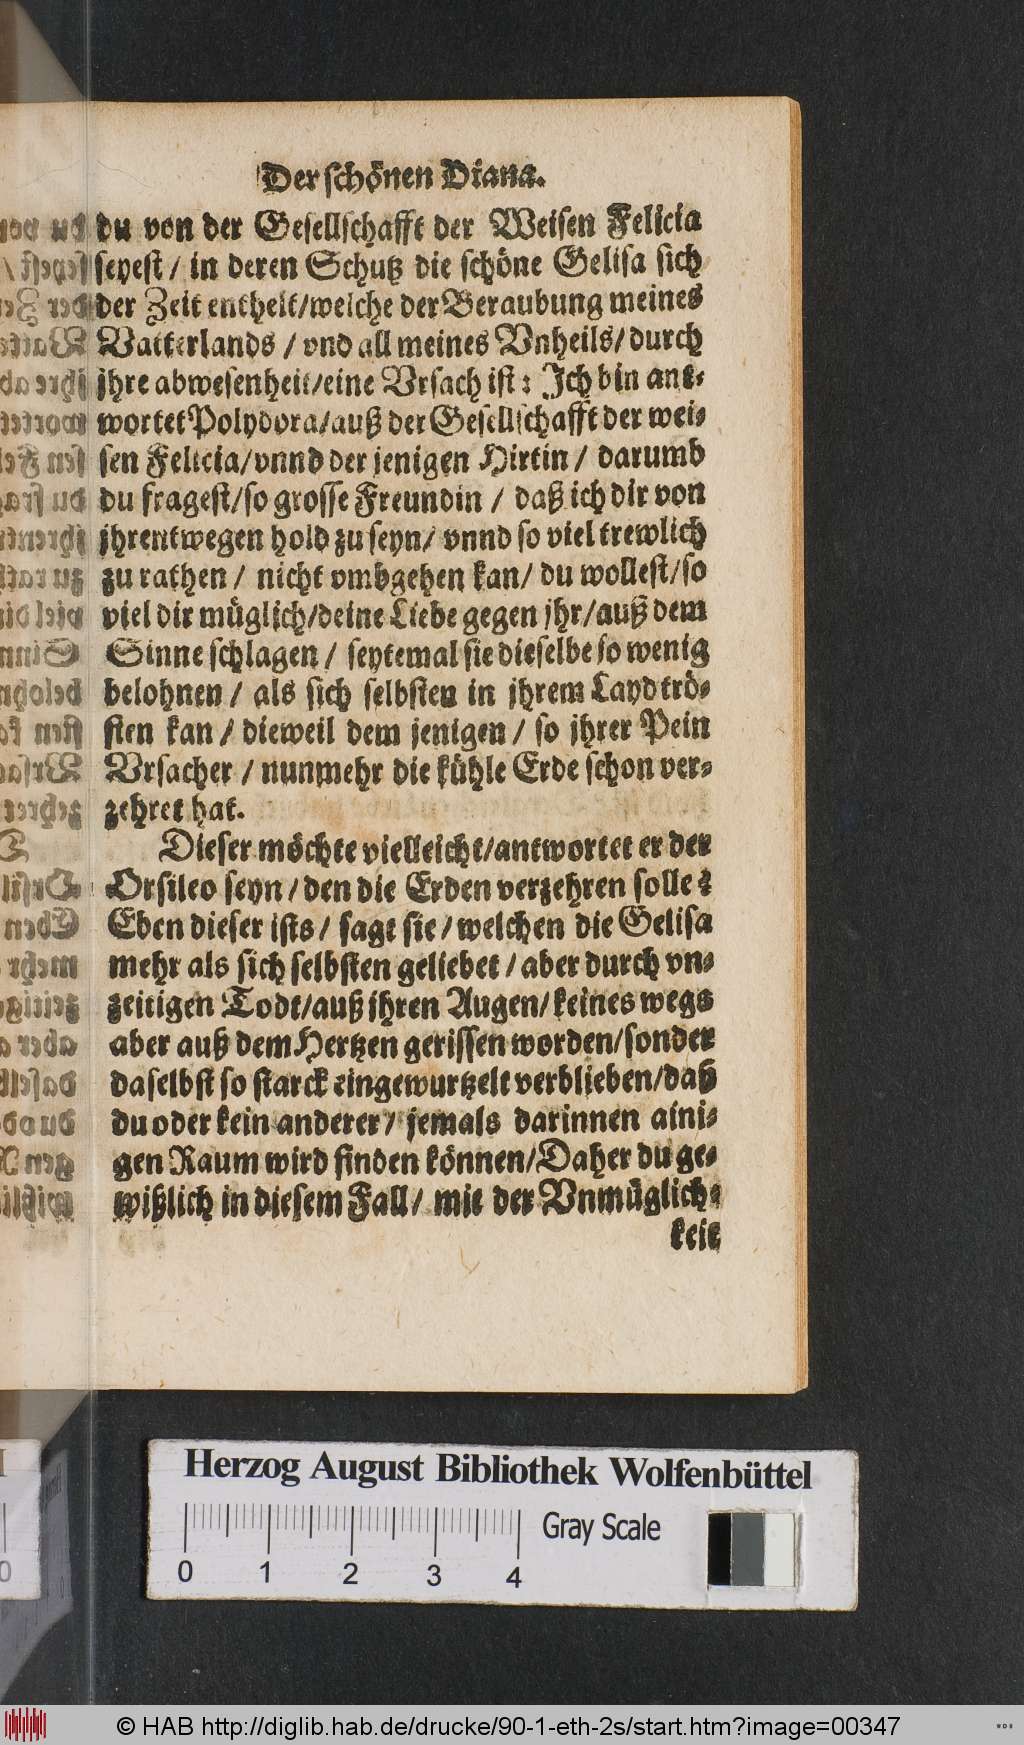 Der schönen Diana.
du von der Gesellschafft der Weisen Felicia
seyest / in deren Schutz die schöne Gelisa sich
der Zeit entheit/welche der Beraubung meines
Vatterlands / vnd all meines Vnheils/ durch
jhre abwesenheit/eine Vrsach ist: Ich bin ant-
wortet Polydora/auß der Gesellschafft der wei-
sen Felicia/vnnd der jenigen Hirtin / darumb
du fragest/so grosse Freundin / daß ich dir von
jhrentwegen hold zu seyn/ vnnd so viel trewlich
zu rathen / nicht vmbgehen kan/ du wollest/so
viel dir müglich/deine Liebe gegen jhr/auß dem
Sinne schlagen / seytemal sie dieselbe so wenig
belohnen / als sich selbsten in jhrem Layd trö-
sten kan / dieweil dem jenigen / so jhrer Pein
Vrsacher / nunmehr die kühle Erde schon ver-
zehret hat.
Dieser möchte vielleicht/antwortet er der
Orsileo seyn / den die Erden verzehren solle?
Eben dieser ists / sagt sie / welchen die Gelisa
mehr als sich selbsten geliebet / aber durch vn-
zeitigen Todt/auß jhren Augen/ keines wegs
aber auß dem Hertzen gerissen worden/sonder
daselbst so starck eingewurtzelt verblieben/daß
du oder kein anderer / jemals darinnen aini-
gen Raum wird finden können/Daher du ge-
wißlich in diesem Fall / mit der Vnmüglich-
keit
Herzog August Bibliothek Wolfenbüttel
0 1 2 3 4 Gray Scale
© HAB http://diglib.hab.de/drucke/90-1-eth-2s/start.htm?image=00347